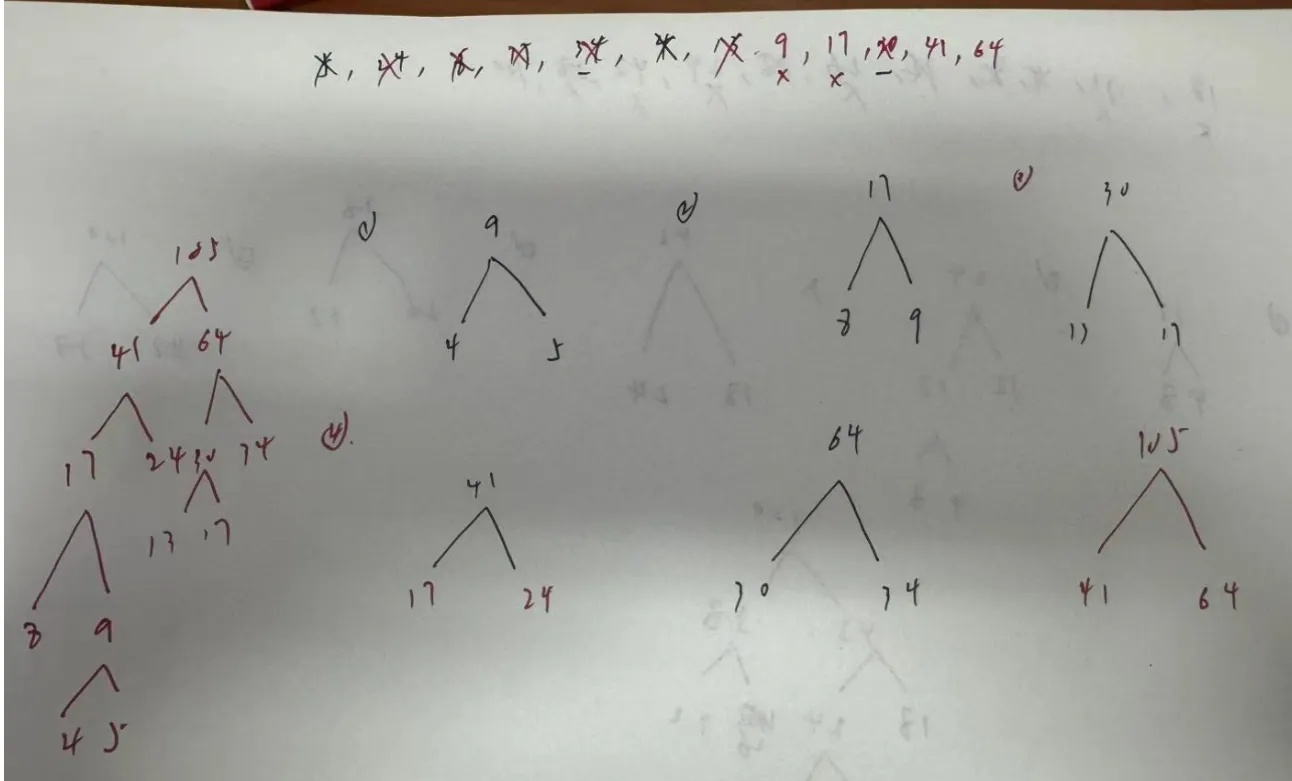 5, 24, 8, 17, 34, 4, 13. 9, 17, 30, 41, 64
x x
① 9
4 5
② 17
8 9
③ 30
13 17
105
41 64
17 24 30 34
8 9 13 17
4 5
④.
41
17 24
64
30 34
105
41 64